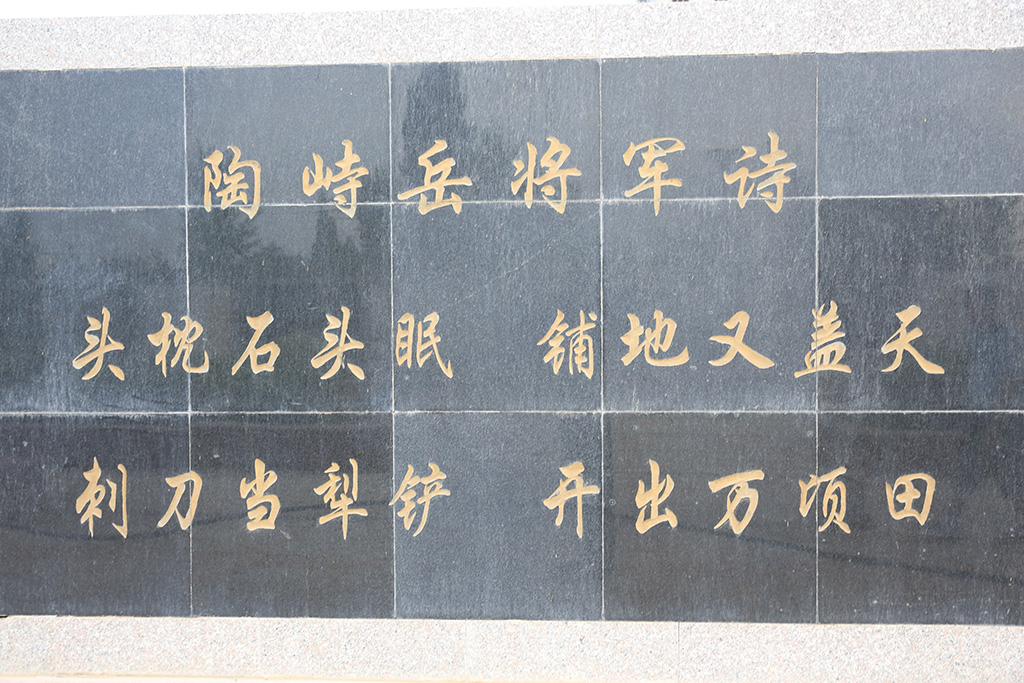 陶峙岳将军诗
头枕石头眠 铺地又盖天
刺刀当犁铲 开出万顷田